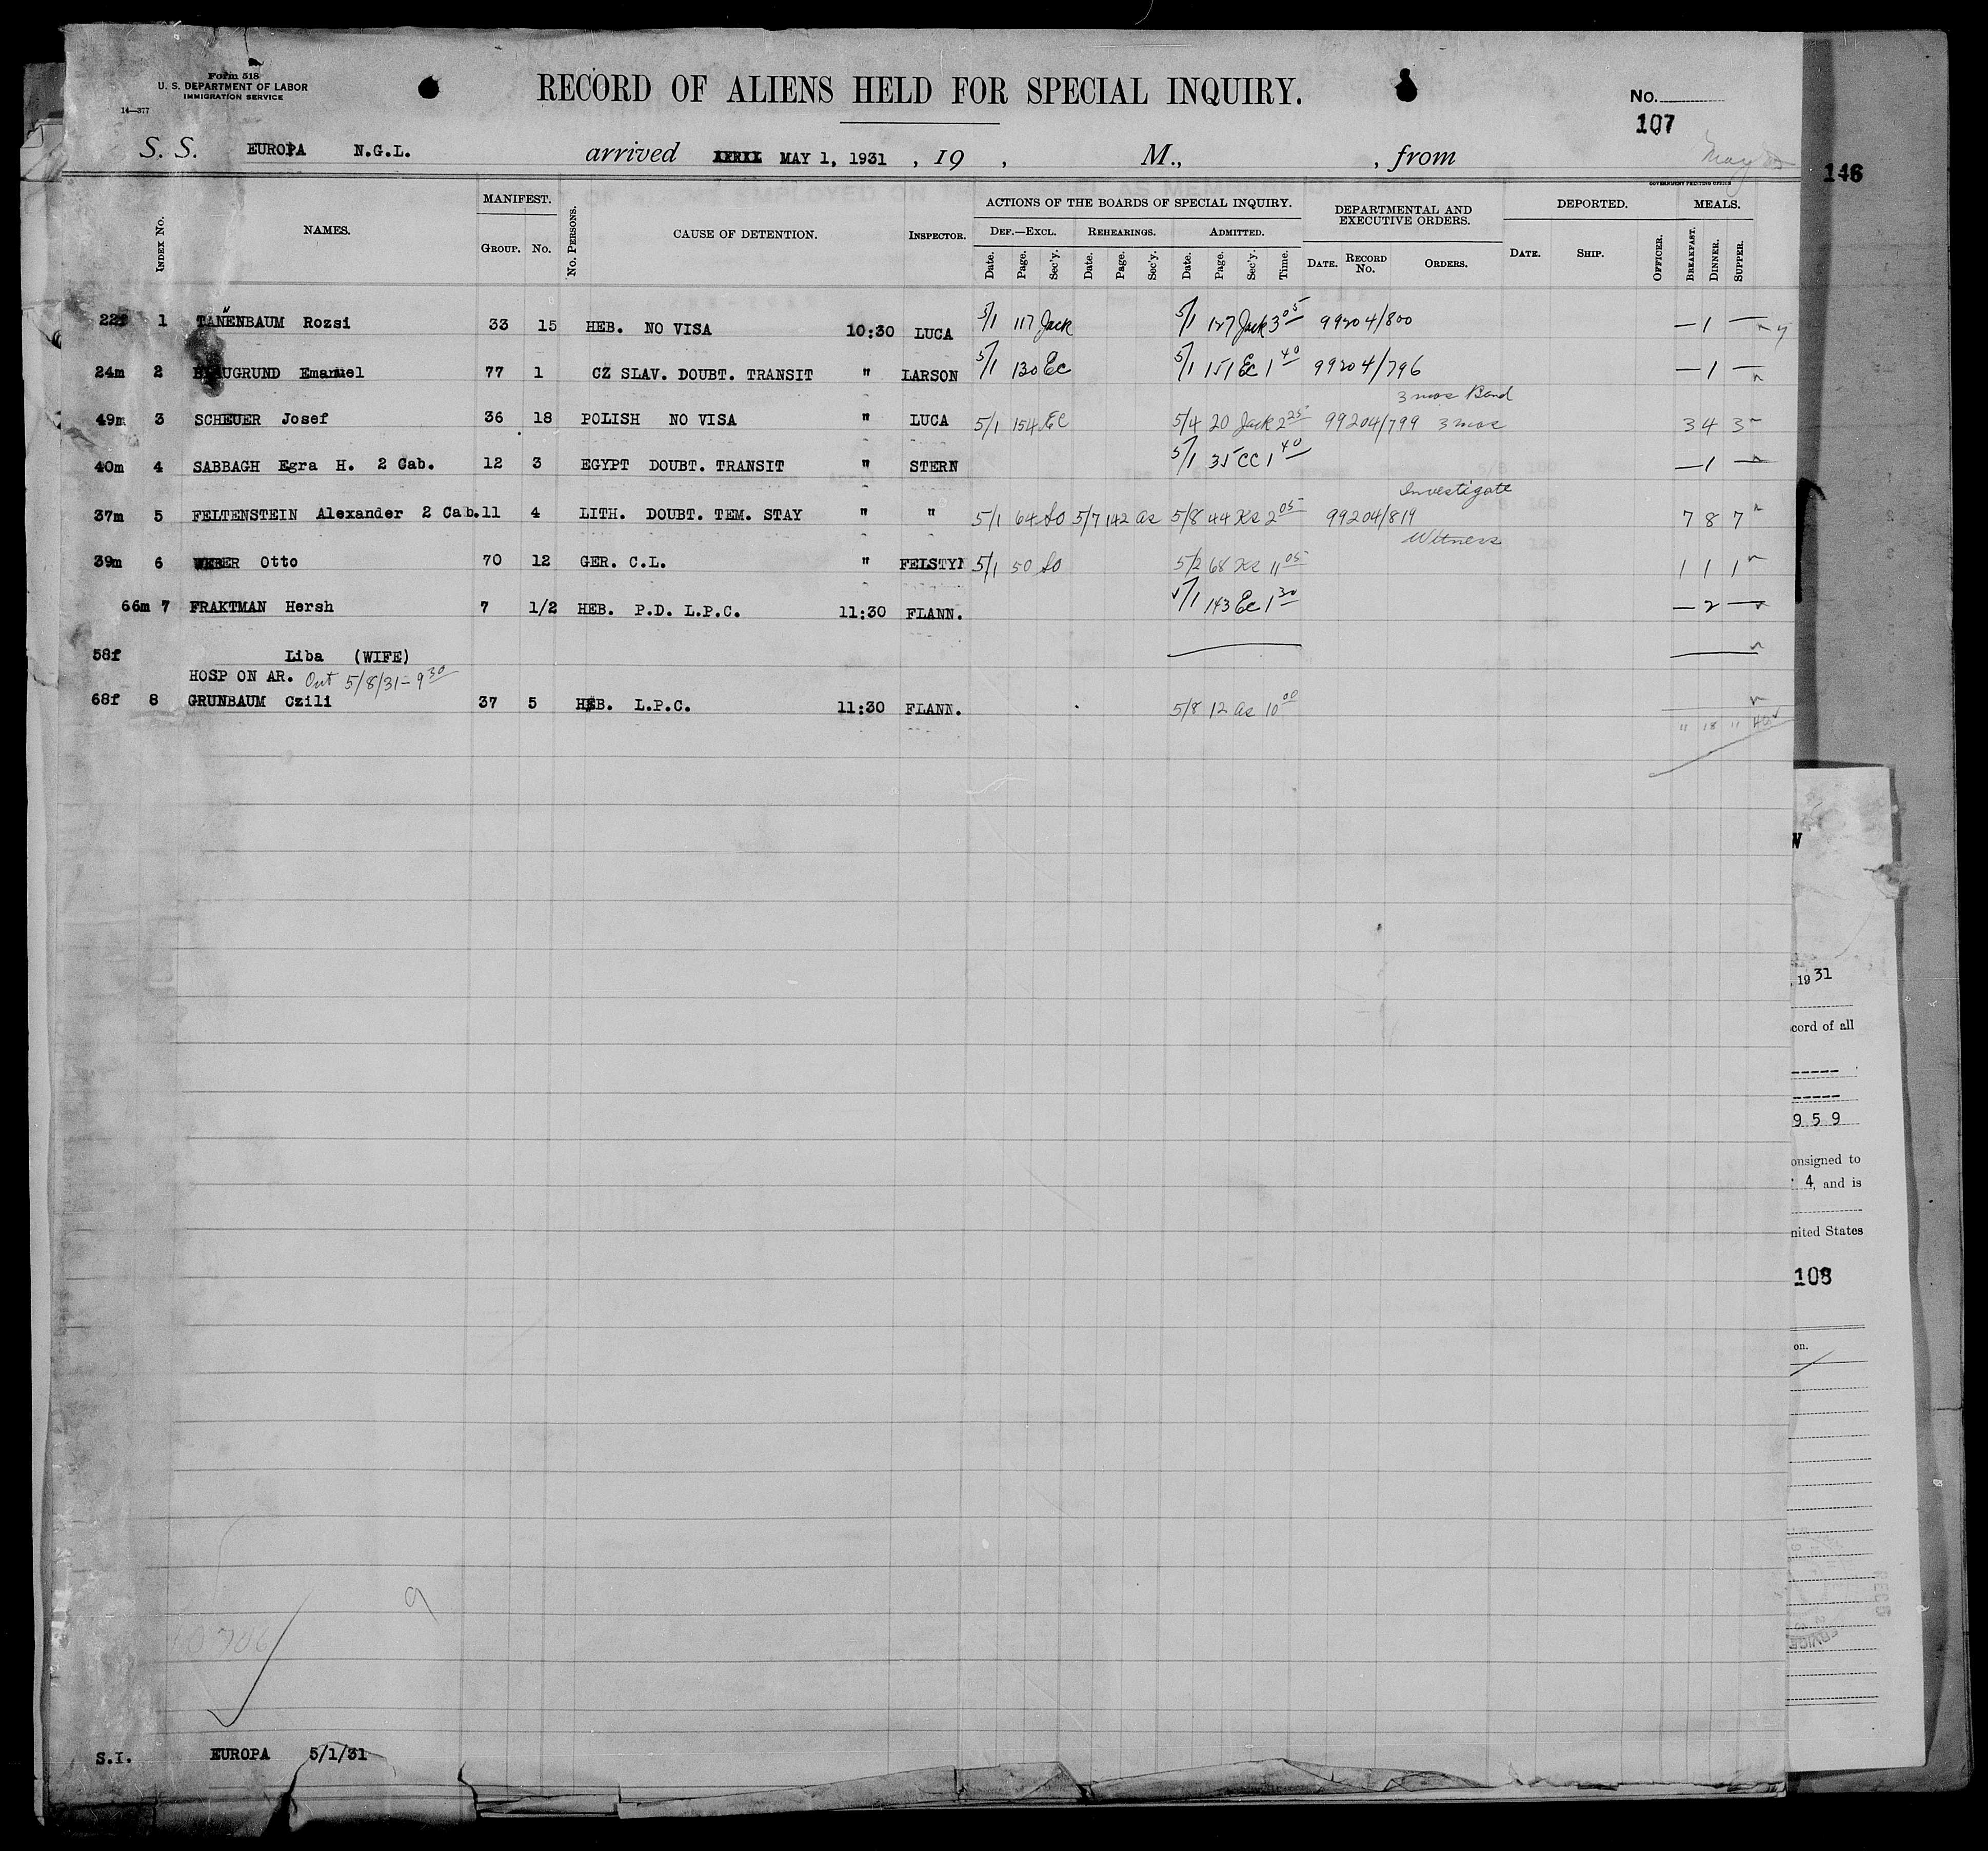 Form 518
U. S. DEPARTMENT OF LABOR
IMMIGRATION SERVICE
14—377
RECORD OF ALIENS HELD FOR SPECIAL INQUIRY.
No.
107
S. S. EUROPA N.G.L. arrived APRIL MAY 1, 1931 , 19 , M., , from
146
GOVERNMENT PRINTING OFFICE
Index No. NAMES. MANIFEST. Group. No. No. Persons. CAUSE OF DETENTION. Inspector. ACTIONS OF THE BOARDS OF SPECIAL INQUIRY. DEPARTMENTAL AND EXECUTIVE ORDERS. DEPORTED. MEALS.
Def.—Excl. Rehearings. Admitted.
Date. Page. Sec'y. Date. Page. Sec'y. Date. Page. Sec'y. Time. Date. Record No. Orders. Date. Ship. Officer. Breakfast. Dinner. Supper.
22f 1 TANENBAUM Rozsi 33 15 HEB. NO VISA 10:30 LUCA 5/1 117 Jack 5/1 127 Jack 3 05 99204/800 — 1 —
24m 2 BLAUGRUND Emanuel 77 1 CZ SLAV. DOUBT. TRANSIT " LARSON 5/1 130 Ec 5/1 151 Ec 1 40 99204/796 — 1 —
3 mos Bond
49m 3 SCHEUER Josef 36 18 POLISH NO VISA " LUCA 5/1 154 Ec 5/4 20 Jack 2 25 99204/799 3 mos 3 4 3
40m 4 SABBAGH Egra H. 2 Cab. 12 3 EGYPT DOUBT. TRANSIT " STERN 5/1 35 CC 1 40 — 1 —
Investigate
37m 5 FELTENSTEIN Alexander 2 Cab. 11 4 LITH. DOUBT. TEM. STAY " " 5/1 64 So 5/7 142 as 5/8 44 Ks 2 05 99204/819 7 8 7
Witness
39m 6 WEBER Otto 70 12 GER. C.L. " FELSTYN 5/1 50 So 5/2 68 Ks 11 05 1 1 1
66m 7 FRAKTMAN Hersh 7 1/2 HEB. P.D. L.P.C. 11:30 FLANN. 5/1 143 Ec 1 30 — 2 —
58f Liba (WIFE)
HOSP ON AR. Out 5/8/31 - 9 30
68f 8 GRUNBAUM Czili 37 5 HEB. L.P.C. 11:30 FLANN. 5/8 12 as 10 00
" 18 " 40
W
, 19 31
cord of all
9 5 9
onsigned to
4, and is
nited States
108
on.
S.I. EUROPA 5/1/31